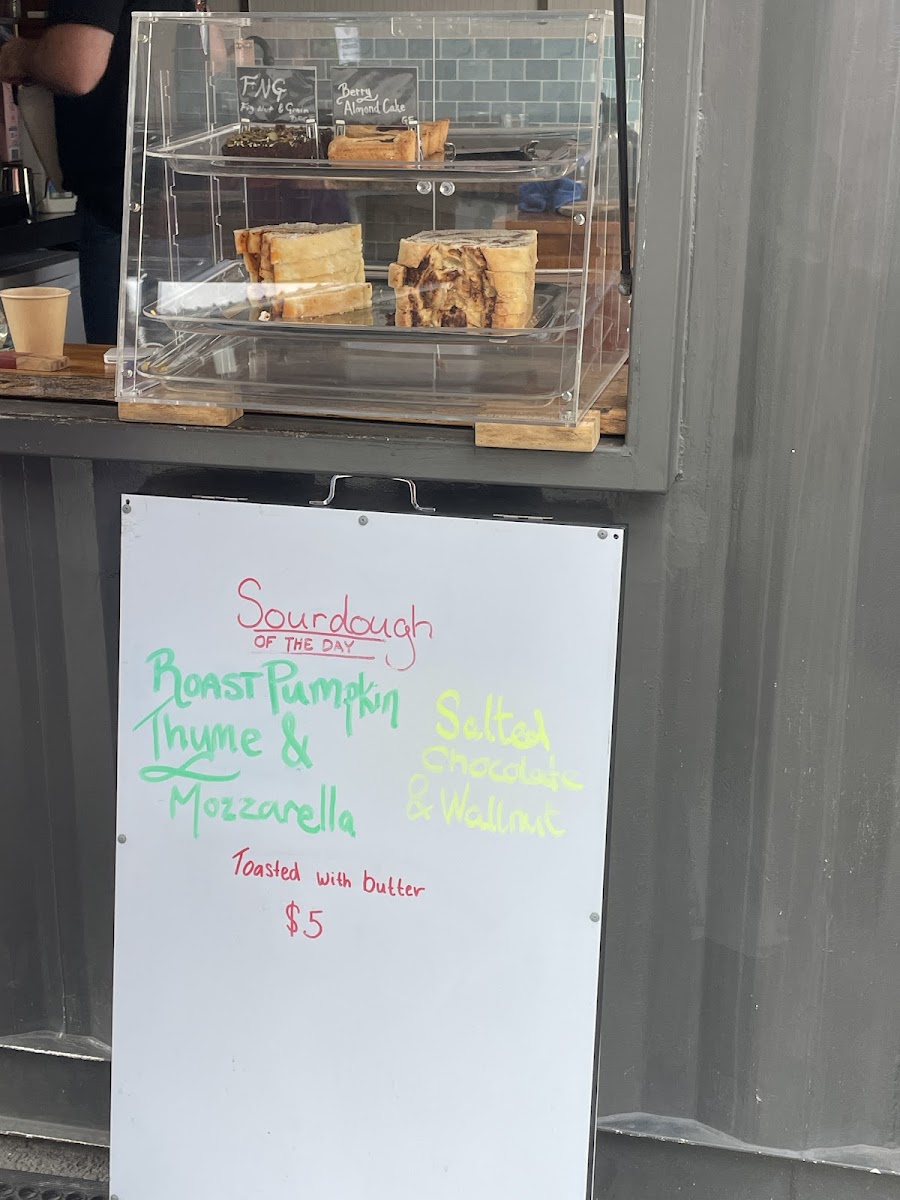 FNG
Fig Nut & Grain
Berry
Almond Cake
Sourdough
OF THE DAY
ROAST Pumpkin
Thyme &
Mozzarella
Salted
Chocolate
& Wallnut
Toasted with butter
$5